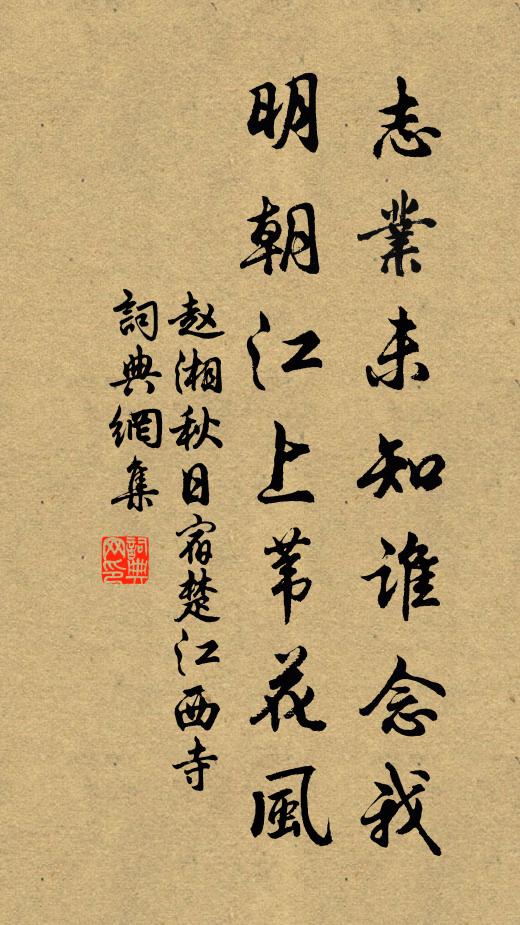 志業未知谁念我
明朝江上苇花風
赵湘秋日宿楚江西寺
詞典網集
詞典
网印